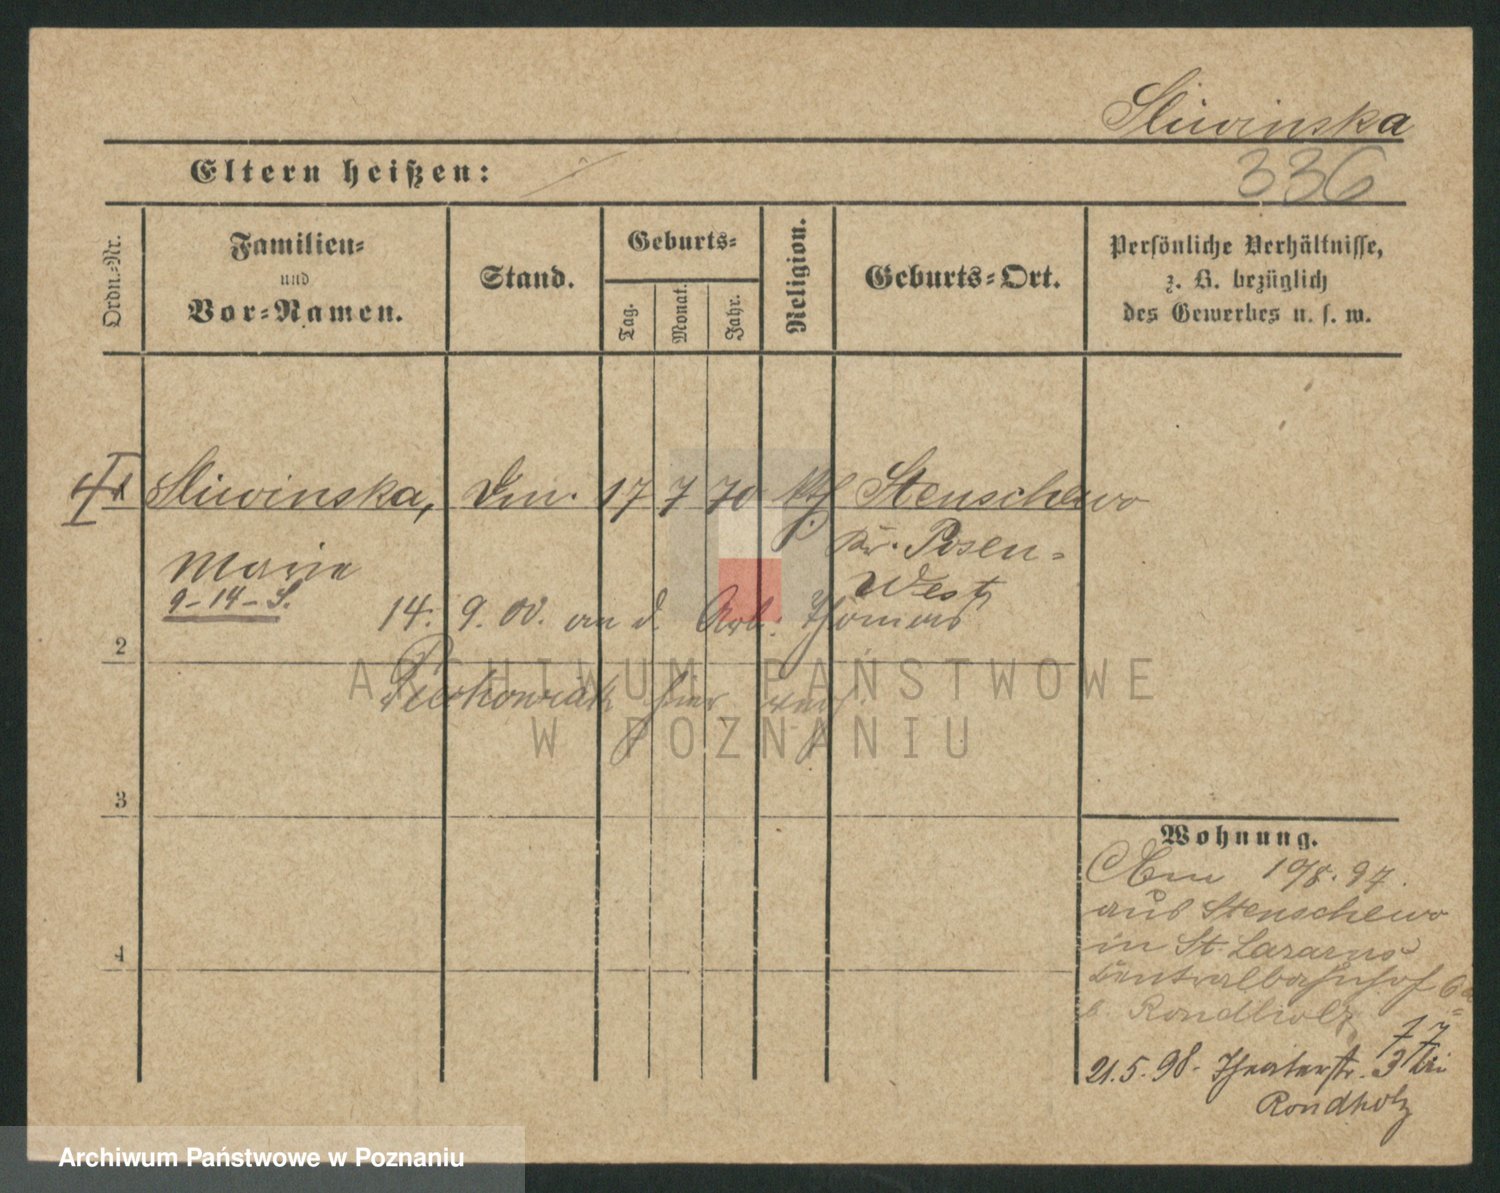 Sliwinska
Eltern heißen:
336
Ordn.-Nr.
Familien-
und
Vor-Namen.
Stand.
Geburts-
Tag.
Monat.
Jahr.
Religion.
Geburts-Ort.
Persönliche Verhältnisse,
z. B. bezüglich
des Gewerbes u. s. w.
Sliwinska, 17 7 70 kth Stenschewo
Marie
Kr. Posen-
West
9-14-S.
14. 9. 00. an d. Arb. Thomas
2
hier
ARCHIWUM PAŃSTWOWE
W POZNANIU
3
Wohnung.
Am 19/8. 97.
aus Stenschewo
in St. Lazarus
Centralbahnhof
b. Rondholz
21.5.98. Theaterstr. 3 bei
Rondholz
4
Archiwum Państwowe w Poznaniu